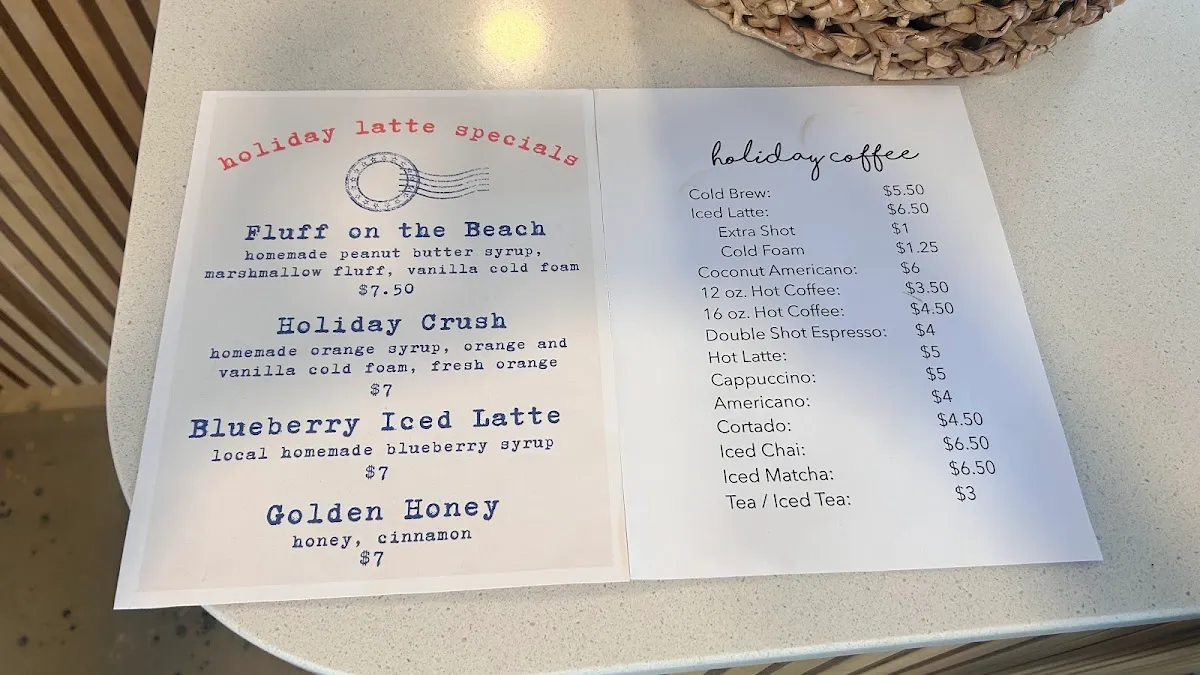 holiday latte specials
Fluff on the Beach
homemade peanut butter syrup,
marshmallow fluff, vanilla cold foam
$7.50
Holiday Crush
homemade orange syrup, orange and
vanilla cold foam, fresh orange
$7
Blueberry Iced Latte
local homemade blueberry syrup
$7
Golden Honey
honey, cinnamon
$7
holiday coffee
Cold Brew: $5.50
Iced Latte: $6.50
Extra Shot $1
Cold Foam $1.25
Coconut Americano: $6
12 oz. Hot Coffee: $3.50
16 oz. Hot Coffee: $4.50
Double Shot Espresso: $4
Hot Latte: $5
Cappuccino: $5
Americano: $4
Cortado: $4.50
Iced Chai: $6.50
Iced Matcha: $6.50
Tea / Iced Tea: $3